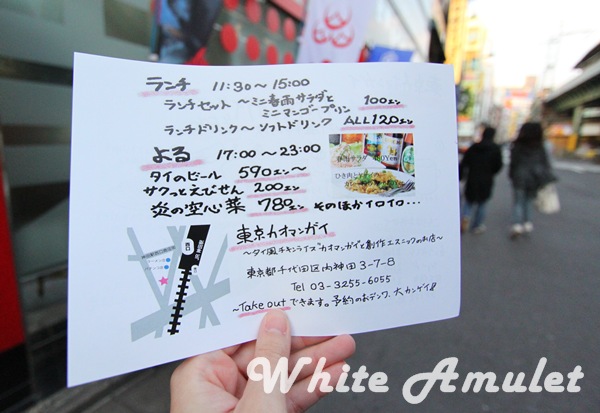 ランチ 11:30～15:00
ランチセット ～ミニ春雨サラダと
ミニマンゴープリン 100エン
ランチドリンク～ソフトドリンク ALL120エン
よる 17:00～23:00
タイのビール 590エン～
サクっとえびせん 200エン
炎の空心菜 780エン そのほかイロイロ…
東京カオマンガイ
～タイ風チキンライス"カオマンガイ"と創作エスニックのお店～
東京都千代田区内神田3-7-8
Tel 03-3255-6055
～Take outできます。予約のおデンワ、大カンゲイ!!
White Amulet